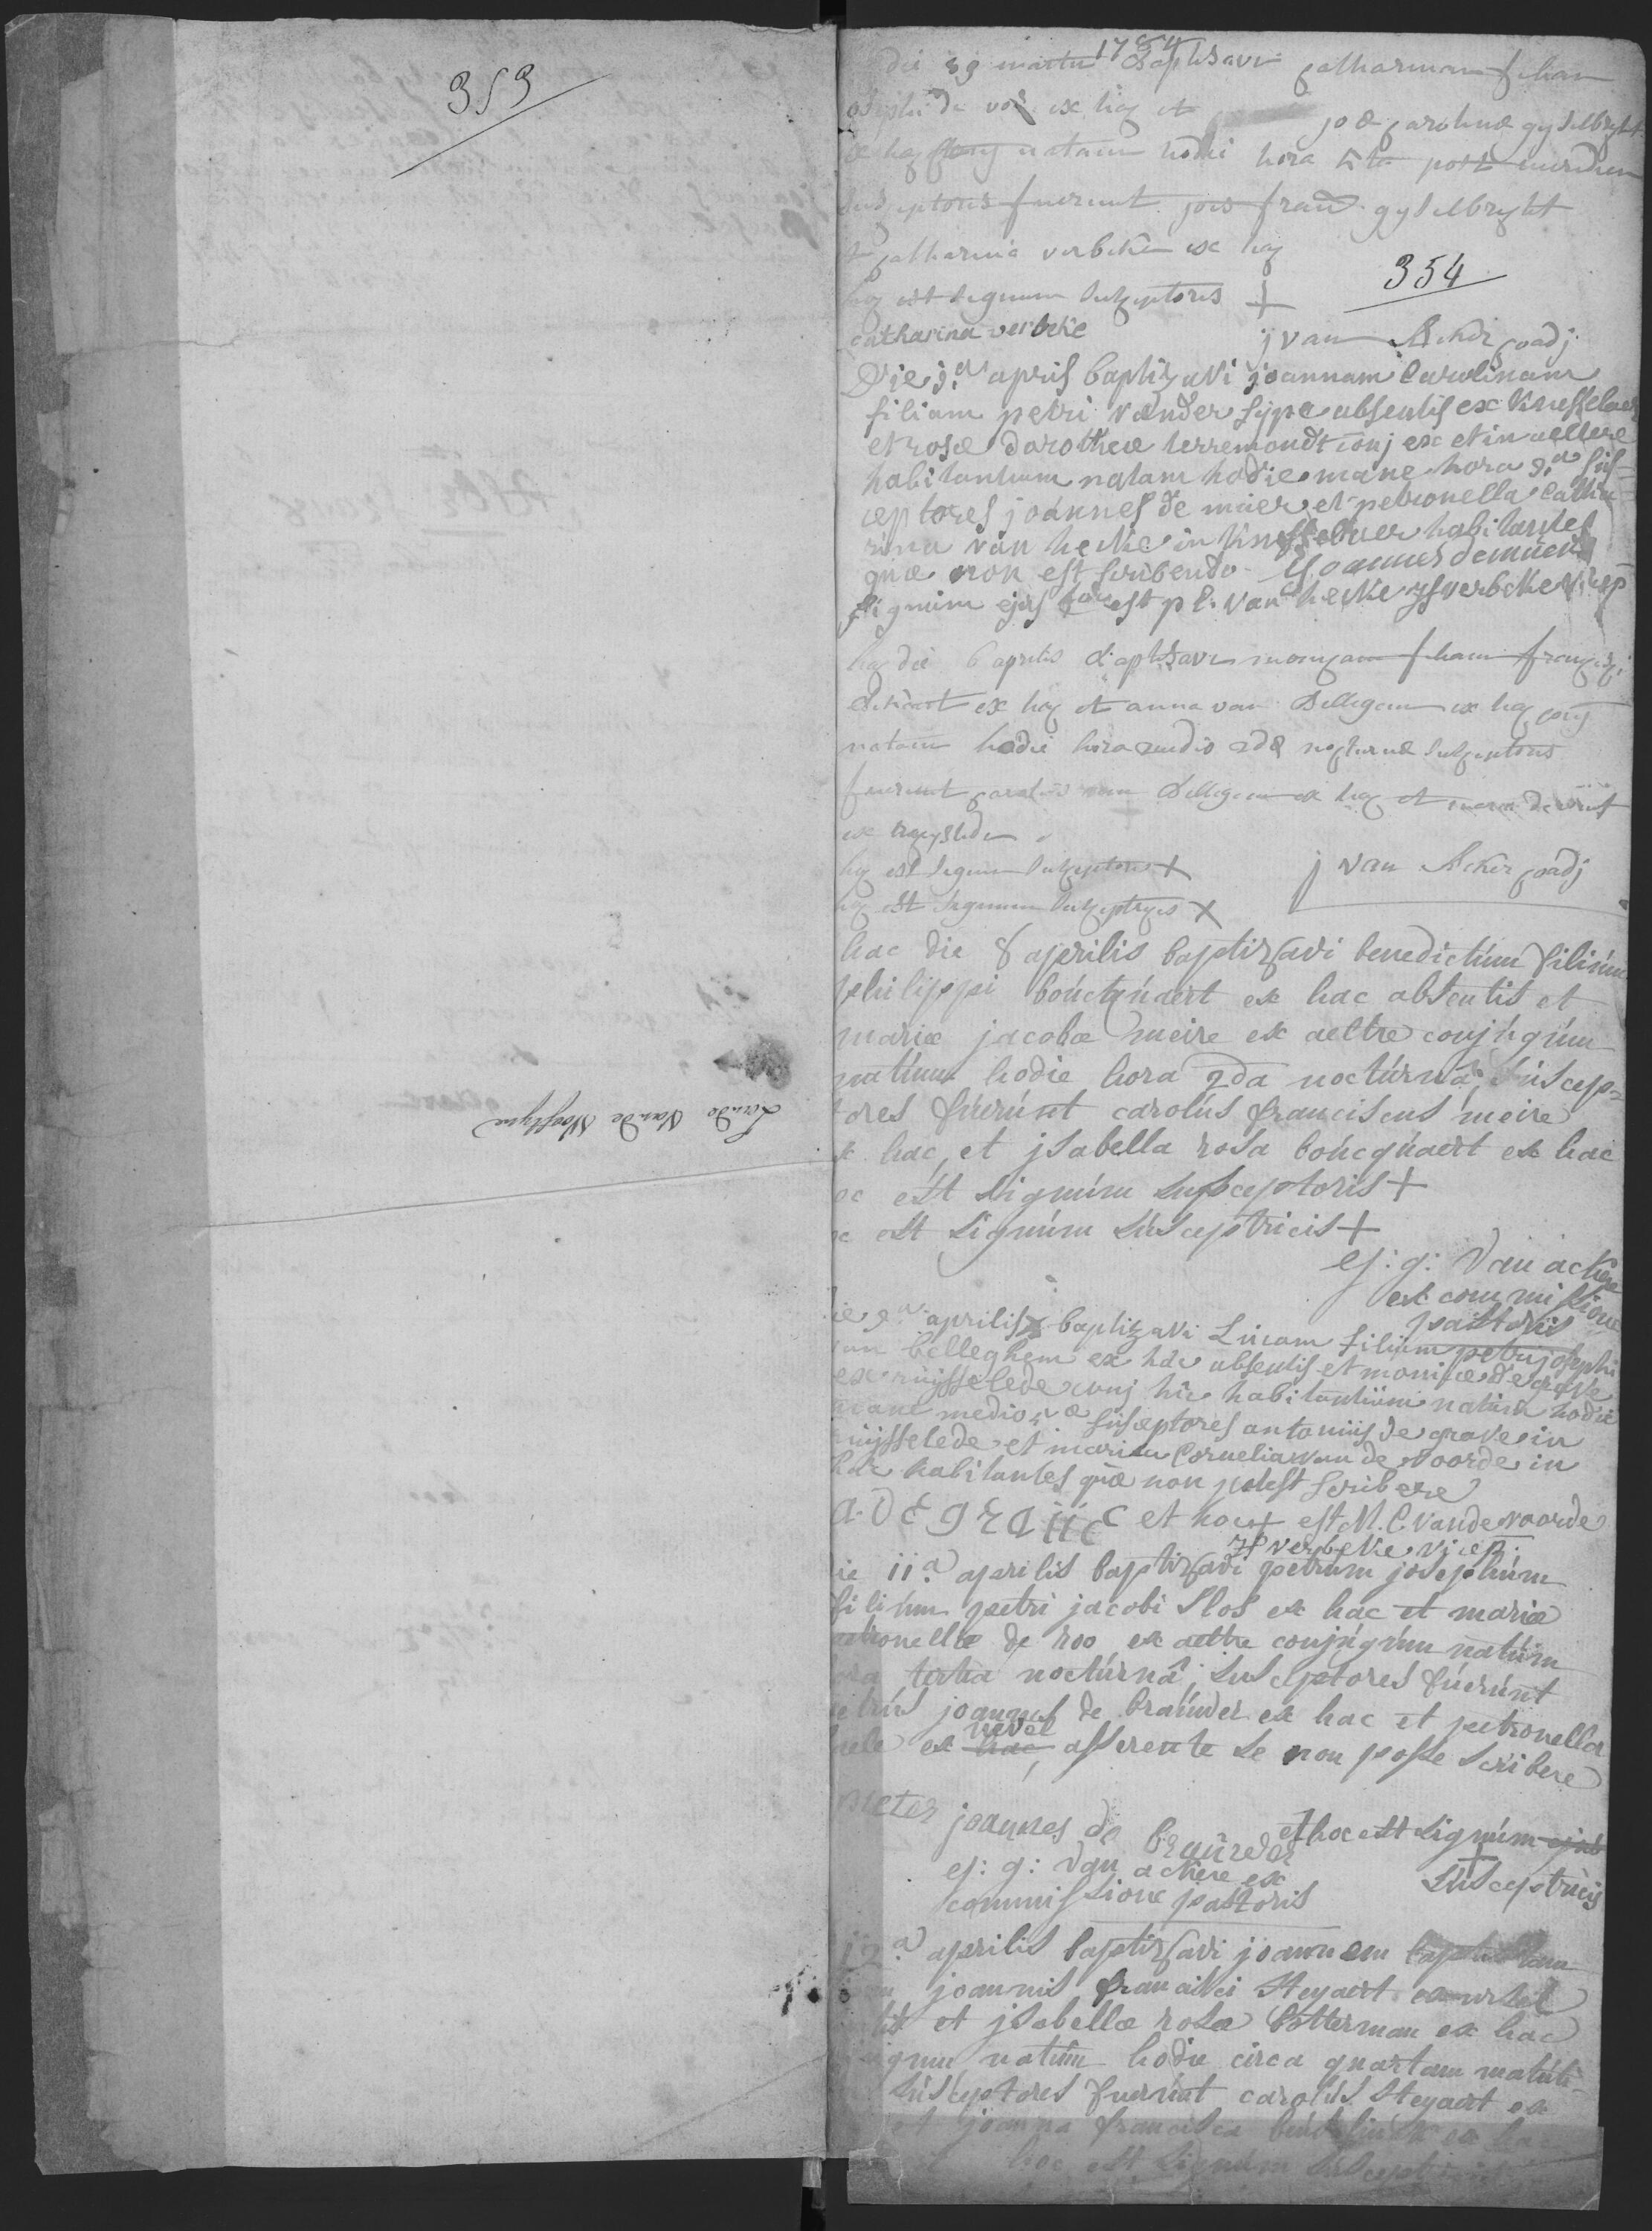 353
Livinde Van de Woestyne
1784
die 29 martii baptisavi catharinam filiam
josephi de vos ex hac et joæ carolinæ gyselbrecht
ex hac conj natam hodie hora 5ta post meridiem
susceptores fuerunt joes fran gyselbreght
et catharina verbeke ex hac
354
hoc est signum susceptoris +
catharina verbeke j van Acker coadj
Die j.a aprils baptizavi joannam Carolinam
filiam petri vander sype absentis ex Knesselaer
et rosæ dorotheæ terremondt conj ex et in aeltre
habitantium natam hodie mane hora 3.a sus-
ceptores joannes de muer et petronella Catha
rina van hecke in Knesselaer habitantes
quæ non est scribendo Joannes demuer
signum ejus + est p C. van hecke verbeke vicep
hac die 6 aprilis baptisavi monicam filiam francisci
ex hac et anna van Bellegem ex hac conj
natam hodie hora media 2dæ nocturnæ susceptores
fuerunt carolus van Bellegem ex hac et maria
ex ruyslede
hoc est signum susceptoris + j van Acker coadj
hoc est signum susceptricis X
hac die 8 aprilis baptizavi benedictum filium
philippi boucquaert ex hac absentis et
mariæ jacobæ meire ex aeltre conjugum
natum hodie hora 2da nocturna, suscep-
tores fuerunt carolus franciscus meire
ex hac, et jsabella rosa boucquaert ex hac
hoc est signum susceptoris +
hoc est signum susceptricis +
ej: g: van ackere
ex commissione
pastoris
die 9.a aprilis baptizavi Lucam filium petri josephi
van belleghem ex hac absentis et monicæ de grave
ex ruijsselede conj hic habitantium natum hodie
mane medio 5æ susceptores antonius de grave in
ruijsselede et maria Cornelia van de voorde in
hac habitantes quæ non potest scribere
A. DE GRAUE et hoc + est M. C. vandevoorde
verbeke vicep.
die 11.a aprilis baptizavi petrum josephum
filium petri jacobi Slos ex hac et mariæ
petronellæ de roo ex aeltre conjugum natum
hora tertia nocturna, susceptores fuerunt
petrus joannes de brauwer ex hac et petronella
nele ex hac nevel, asserente se non posse scribere
pieter joannes de brauwer et hoc est signum ejus
ej: g: van ackere ex + susceptricis
commissione pastoris
12.a aprilis baptizavi joannem baptistam
joannis francisci Steyaert ex ursel
et jsabellæ rosæ Cotterman ex hac
natum hodie circa quartam matuti-
susceptores fuerunt carolus Steyaert ex
et joanna francisca ex hac
hoc est signum susceptricis